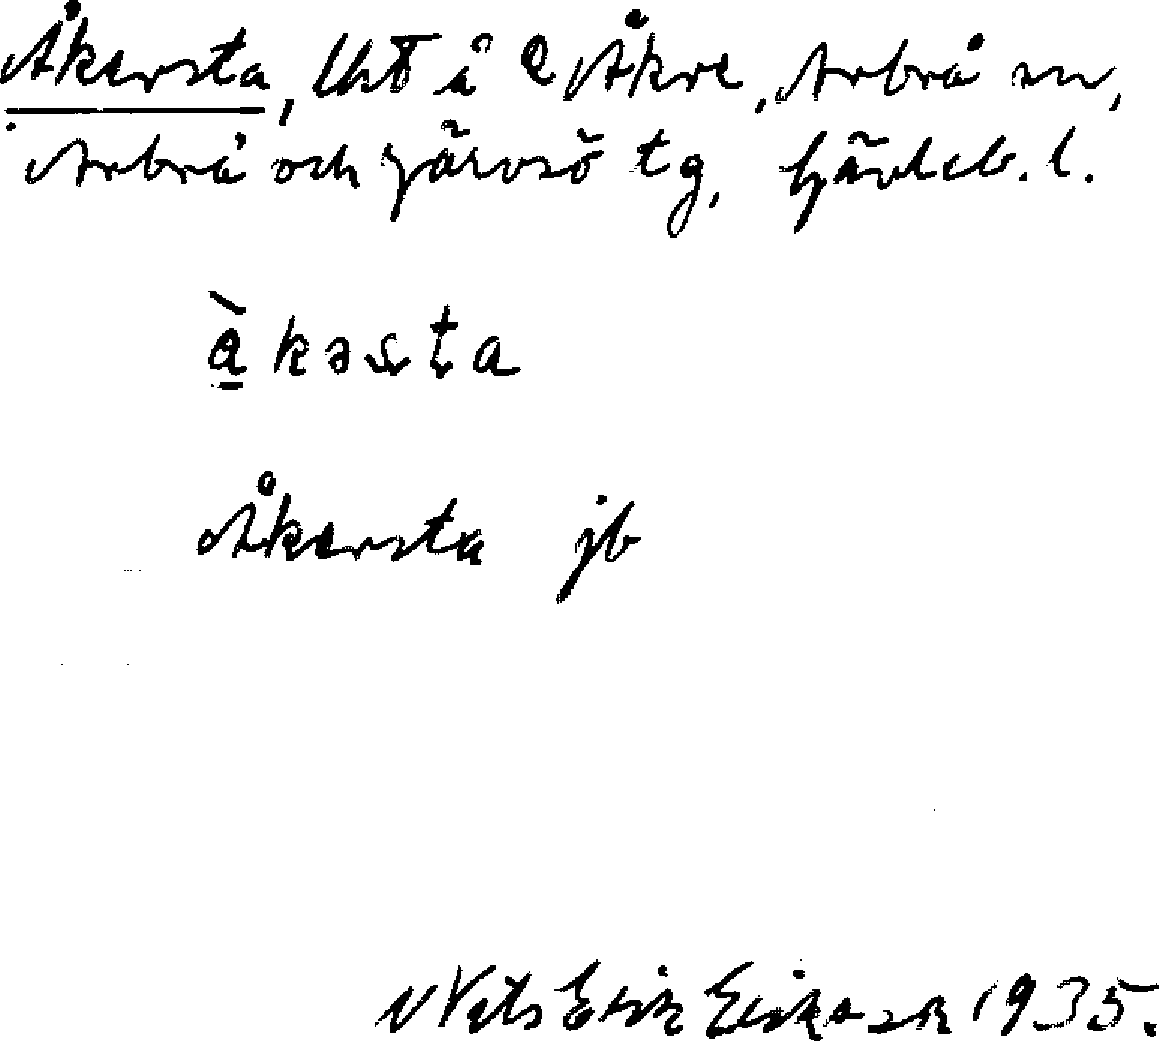 Åkersta, å Åkre, Arbrå sn,
Arbrå och Järvsö tg, Gävleb. l.
Åkersta jb
Nils Erik Eriksson 1935.